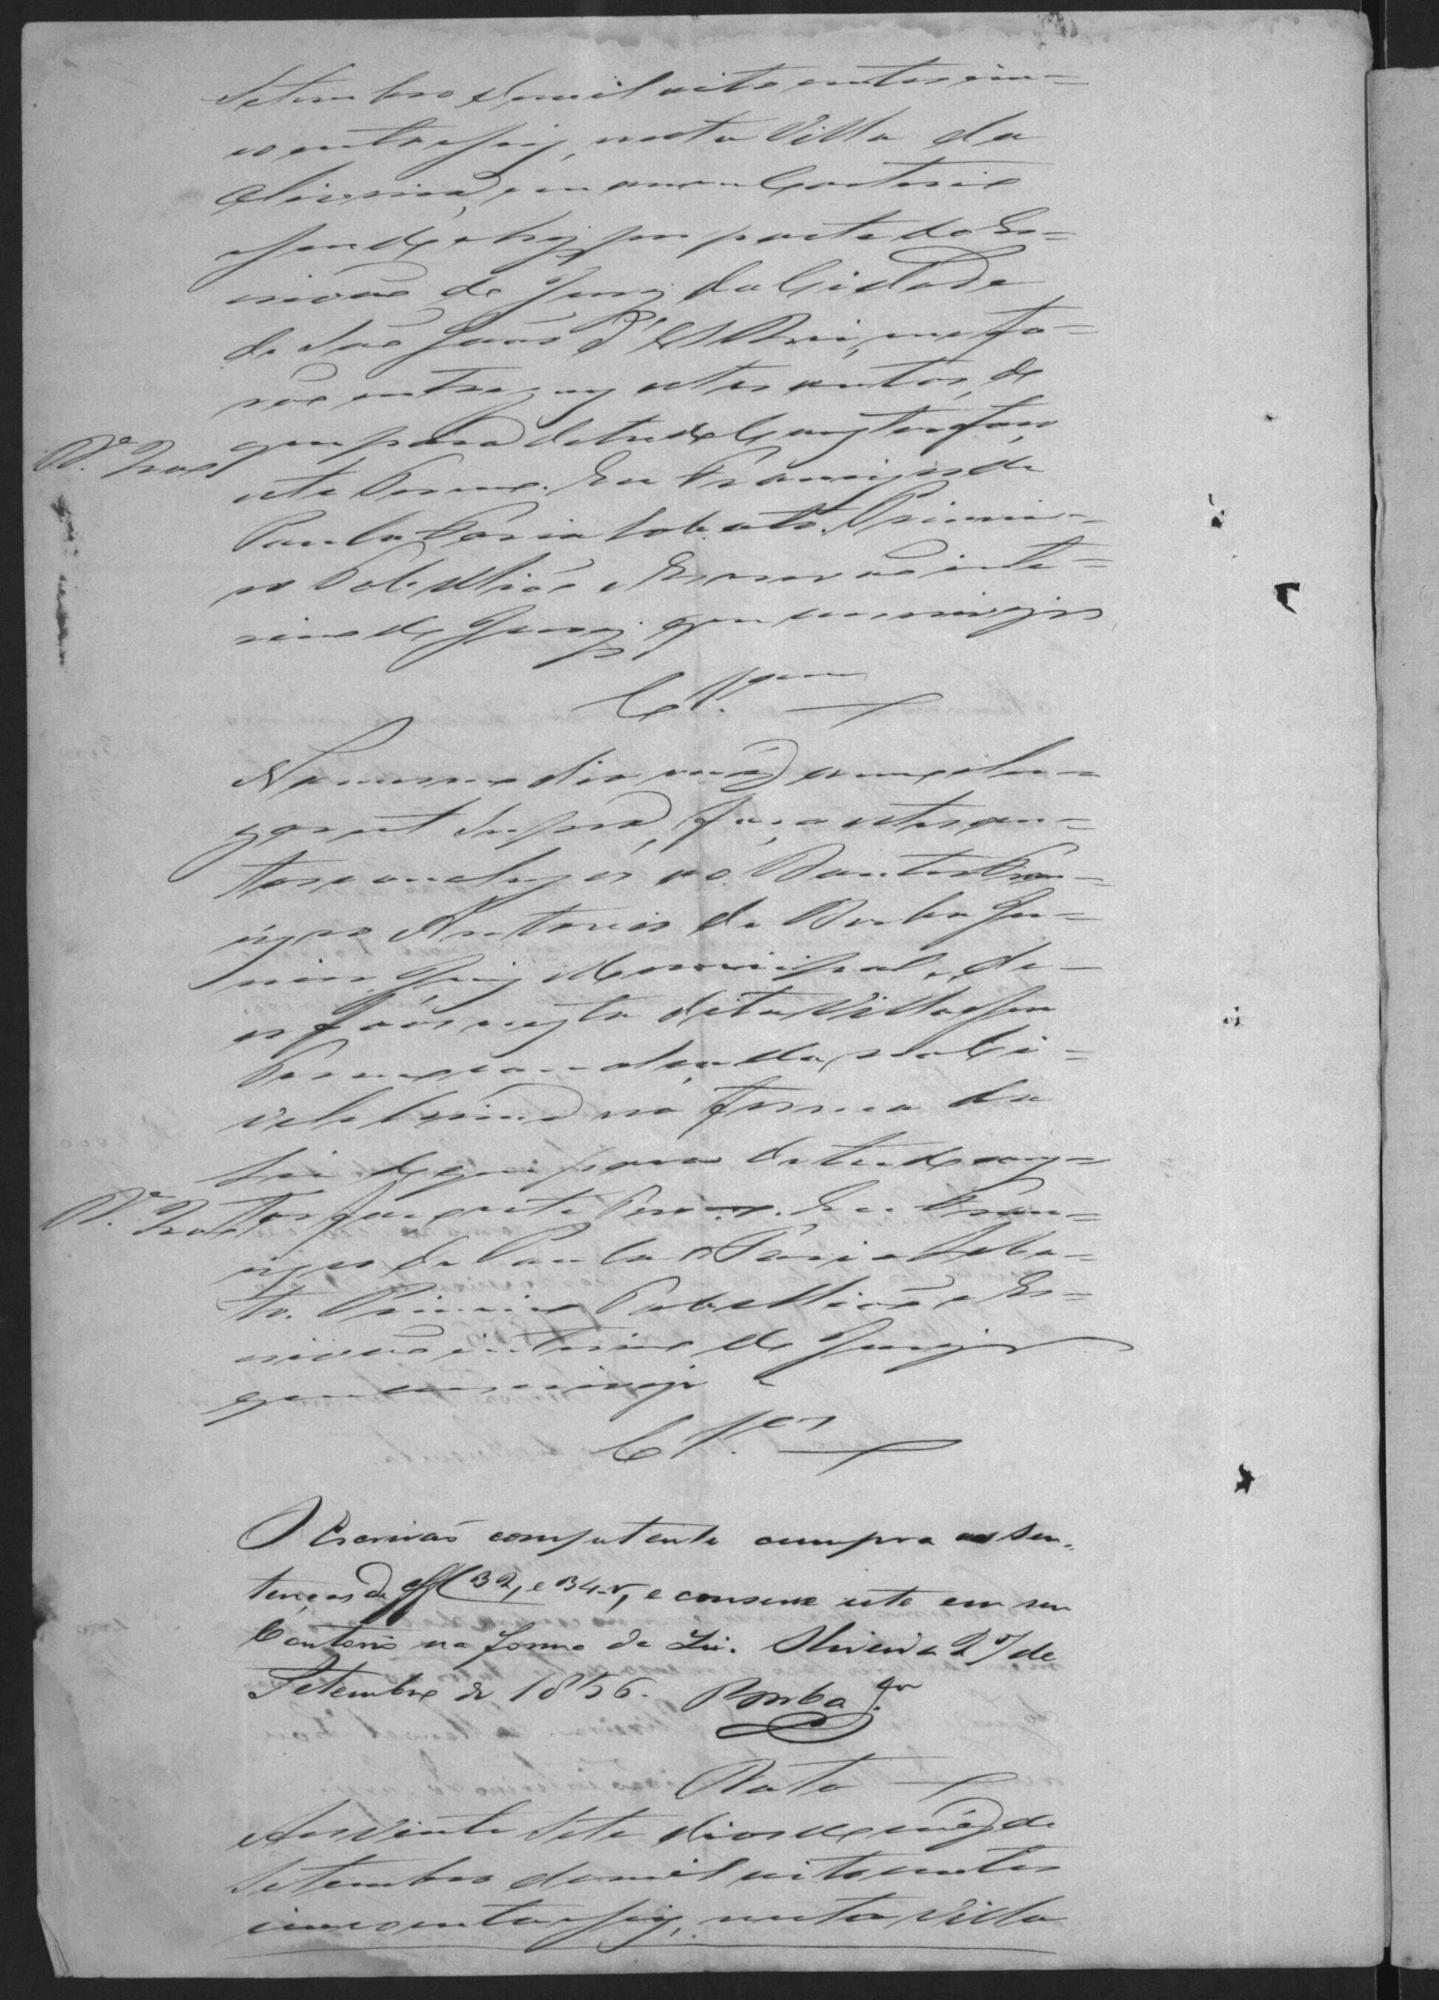 Setembro de mil oito centos cin=
coenta e seis, nesta Villa da
Oliveira, em meu Cartorio
ahi por parte do Es=
crivão de Jury da Cidade
de São João d'El Rei, me fo=
rão entregues estes autos, de
que para de tudo constar faço
este termo. Eu Francisco de
Paula Faria Lobato. Primei=
ro Tabellião e Escrivão inte=
rino de Jury que escrevi
Clsam
No mesmo dia, mês, anno e lu=
gar ut supra, faço estes au=
tos conclusos ao Doutor Fran=
cisco Antonio da Borba Ju=
nior, Juiz Municipal, de
Orfãos nesta dita Villa, seu
Termo
na forma da
Lei de que para de tudo cons=
tar faço este termo. Eu Fran=
cisco de Paula Faria Loba=
to. Primeiro Tabellião e Es=
crivão interino de Jury
que escrevi
Clsos
O Escrivão competente cumpra as sen.
tenças de ff 32, e 34 v, e conserve este em seu
Cartorio na forma da Lei. Oliveira 27 de
Setembro de 1856. Borba Jor
Data
Aos vinte sete dias do mês de
Setembro de mil oito centos
cincoenta e seis, nesta Villa